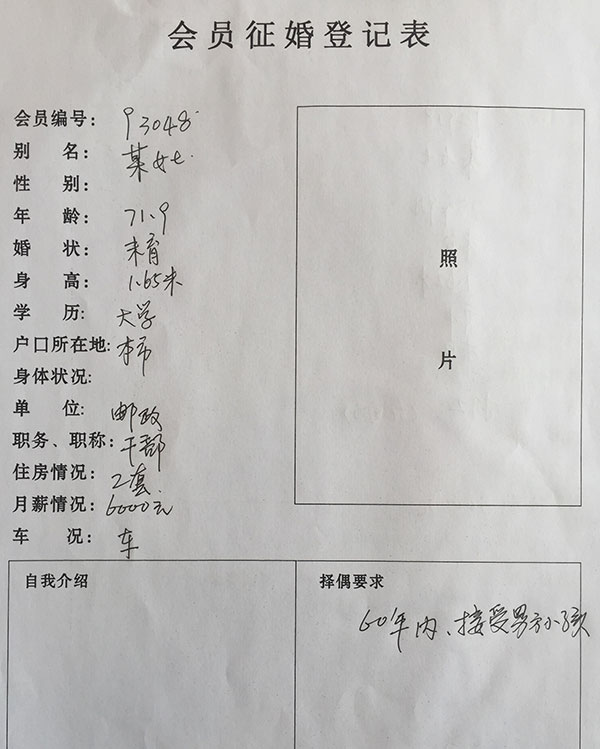 会员征婚登记表
会员编号: 93048
别 名: 某女士
性 别:
年 龄: 71.9
婚 状: 未育
身 高: 1.65米
学 历: 大学
户口所在地: 本市
身体状况:
单 位: 邮政
职务、职称: 干部
住房情况: 2套
月薪情况: 6000元
车 况: 车
照
片
自我介绍
择偶要求
60年内、接受男方小孩